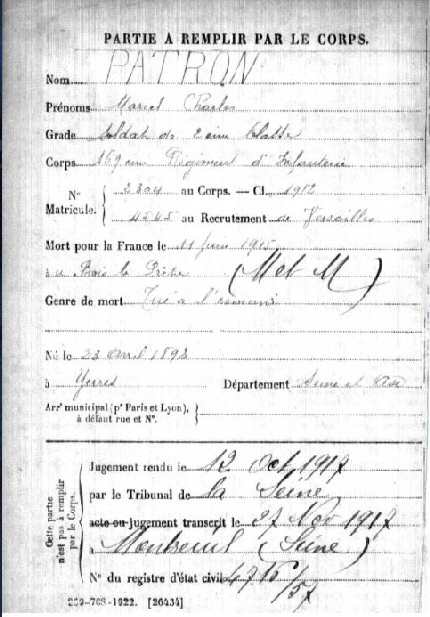 PARTIE A REMPLIR PAR LE CORPS.
Nom PATRON
Prénoms Marcel Charles
Grade Soldat de 2eme Classe
Corps 169eme Régiment d'Infanterie
N° 2304 au Corps. — Cl. 1912
Matricule. 4545 au Recrutement de Versailles
Mort pour la France le 11 Juin 1915
au Bois le Prêtre (M et M)
Genre de mort Tué à l'ennemi
Né le 23 avril 1892
à Yerres Département Seine et Oise
Arrt municipal (pr Paris et Lyon), à défaut rue et N°.
Cette partie n'est pas à remplir par le Corps.
Jugement rendu le 12 Oct 1917
par le Tribunal de la Seine
acte ou jugement transcrit le 27 Nov 1917
à Montreuil (Seine)
N° du registre d'état civil 4716/57
[26434]